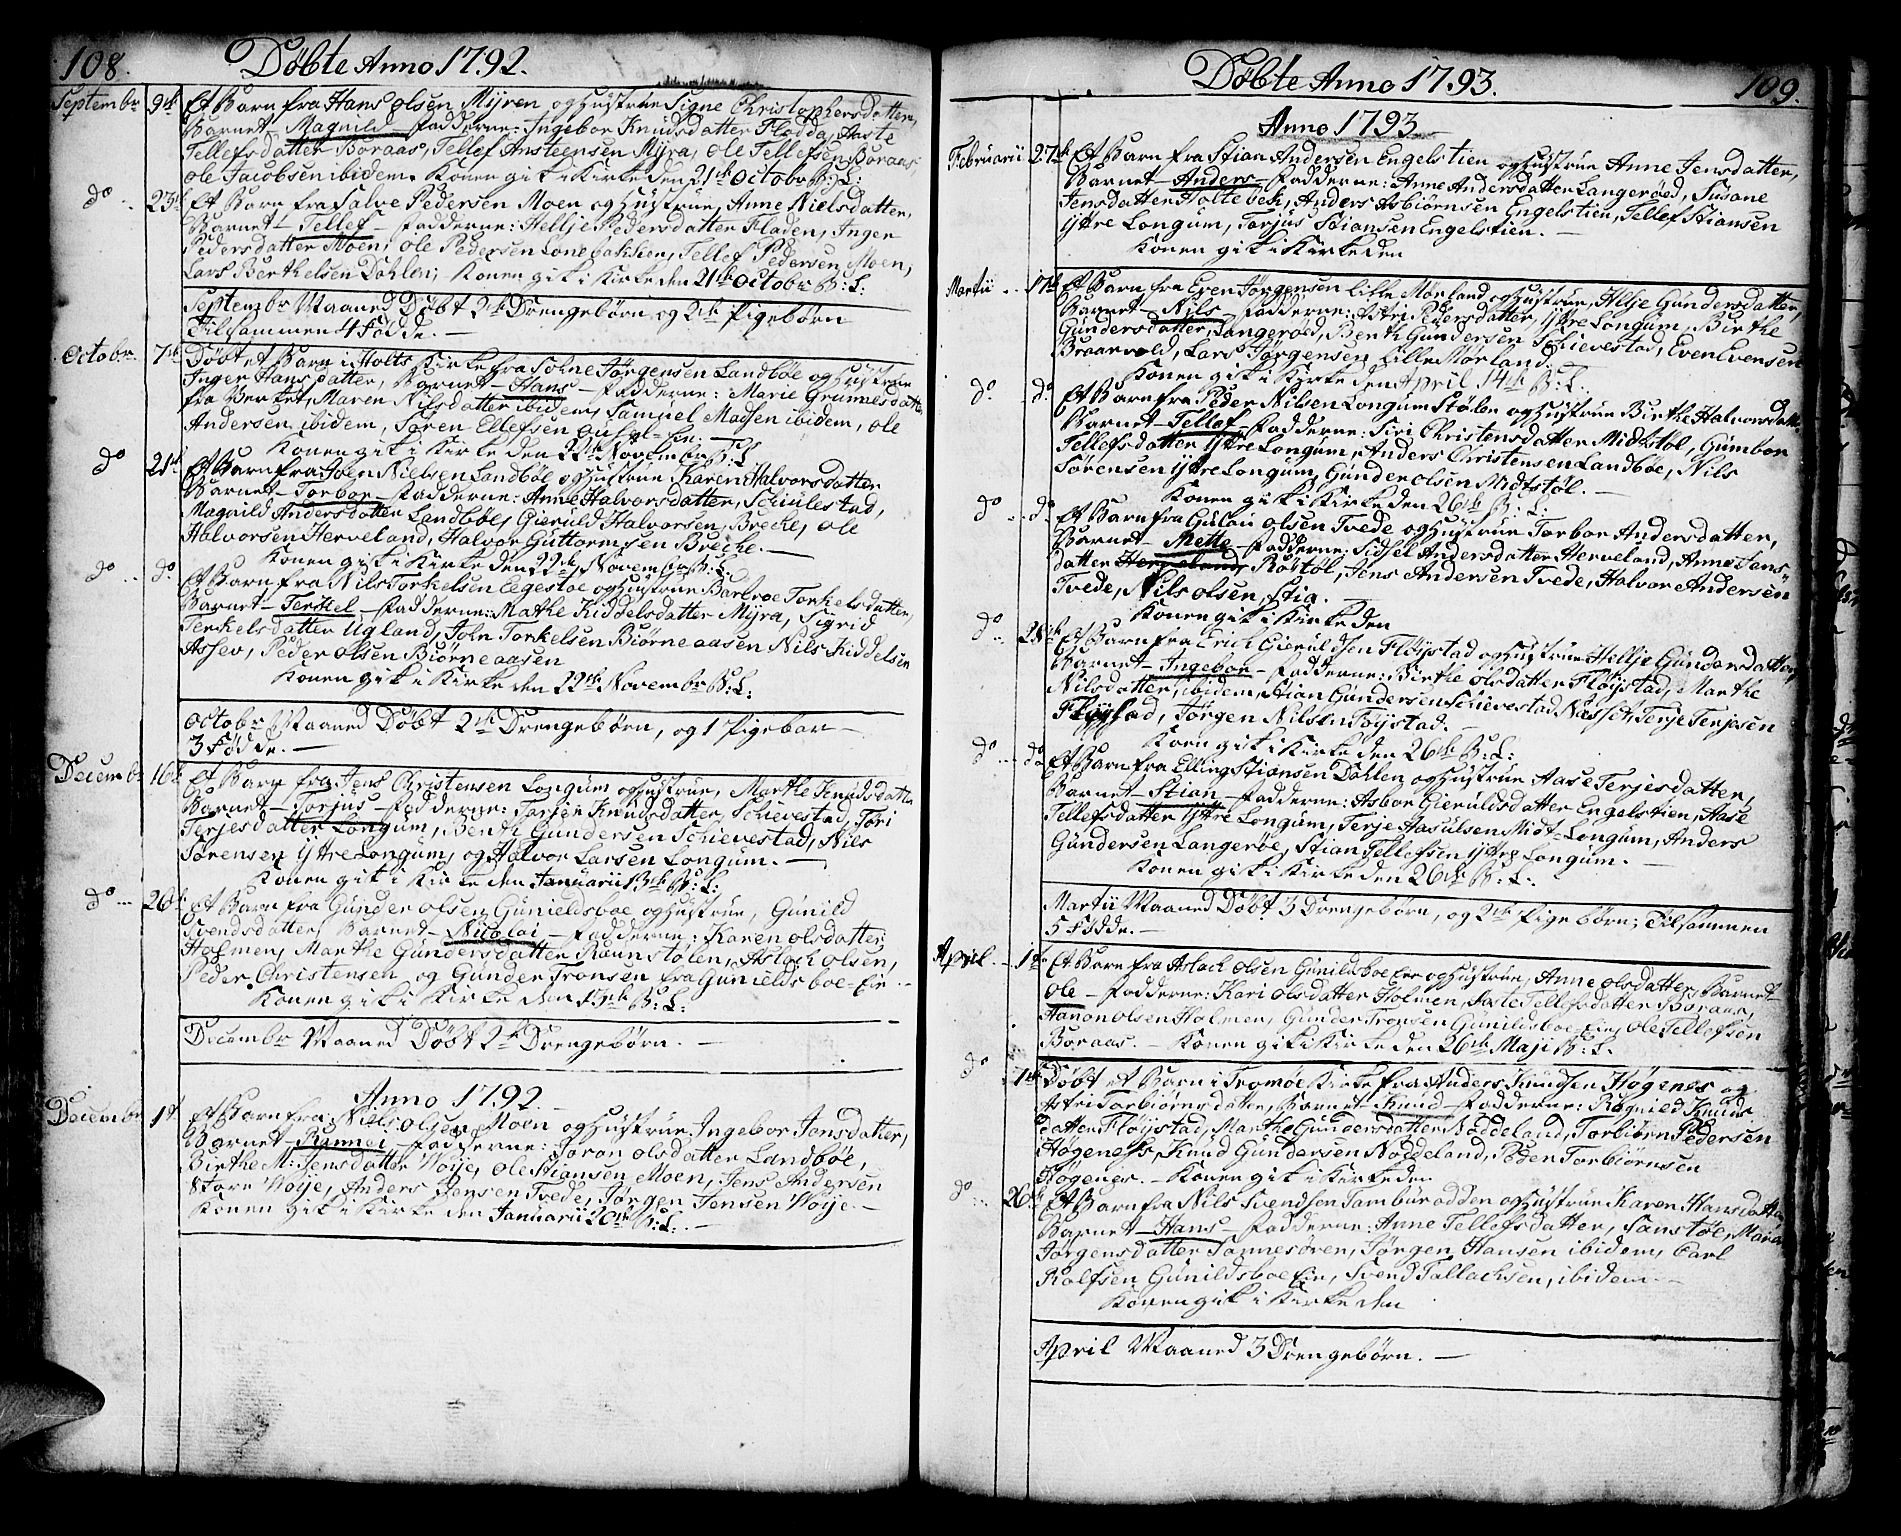 108.
Døbte Anno 1792.
Septembr 9de Et Barn fra Hans Olsen Myren og Hustrue Signe Christophersdatter,
Barnet - Magnild - Fadderne: Ingebor Knudsdatter Flodda, Aaste
Tellefsdatter Boraas, Tellef Ansteensen Myra, Ole Tellefsen Boraas,
Ole Jacobsen ibidem. Konen gik i Kirke den 21de Octobr B: L:
do 23de Et Barn fra Salve Pedersen Moen og Hustrue Anne Nielsdatter,
Barnet - Tellef - Fadderne: Hellje Pedersdatter Fladen, Inger
Pedersdatter Moen, Ole Pedersen Lonebakken, Tellef Pedersen Moen,
Lars Berthelsen Dahlen; Konen gik i Kirke den 21de Octobr B: L:
Septembr Maaned Døbt 2de Drengebørn og 2de Pigebørn
Tilsammen 4 Fødde. -
Octobr 7de Døbt et Barn i Holts Kirke fra Johne Jørgensen Landbøe og Hustrue
Inger Hansdatter, Barnet - Hans - Fadderne: Marie Grumesdatter
fra Berket, Maren Nilsdatter ibidem, Samuel Madsen ibidem, Ole
Andersen ibidem, Søren Ellefsen
Konen gik i Kirke den 22de Novembr B: L
do 21de Et Barn fra John Nielsen Landbøe og Hustrue Karen Halvorsdatter
Barnet - Torbor - Fadderne: Anne Halvorsdatter, Schulestad,
Magnild Andersdatter Landbøe, Gieruld Halvorsen, Breche, Ole
Halvorsen Herveland, Halvor Guttormsen Breche. -
Konen gik i Kirke den 22de Novembr B: L:
do do Et Barn fra Nils Torkelsen Eegeboe og Hustrue Barbroe Torkelsdatter,
Barnet - Terkel - Fadderne: Mathe Kiddelsdatter Myra, Sigrid
Terkelsdatter Ugland, John Torkelsen Biørneaasen Nils Kiddelsen
Assev, Peder Olsen Biørneaasen
Konen gik i Kirke den 22de Novembr B: L:
Octobr Maaned Døbt 2de Drengebørn, og 1 Pigebar -
3 Fødde. -
Decembr 16de Et Barn fra Jens Christensen Longum og Hustrue, Marthe Knudsdatter
Barnet - Torjus - Fadderne: Torjer Knudsdatter, Schievestad, Tori
Terjesdatter Longum, Benth Gundersen Schievestad, Nils
Sørensen Yttre Longum, og Halvor Larsen Longum. -
Konen gik i Kirke den Januarii 13de B: L:
do 26de Et Barn fra Gunder Olsen Gunieldsboe og Hustrue, Gunild
Svendsdatter, Barnet - Nicolai - Fadderne: Karen Olsdatter
Holmen, Marthe Gundersdatter Rønnstølen, Aslack Olsen,
Peder Christensen og Gunder Tronsen fra Gunieldsboe-Eie. -
Konen gik i Kirke den 13de B: L:
Decembr Maaned Døbt 2de Drengebørn. -
Anno 1792
Decembr 1te Et Barn fra Niels Olsen Moen og Hustrue Ingebor Jensdatter,
Barnet - Rannei - Fadderne: Joran Olsdatter Landbøe,
Birthe M: Jensdatter Woije, Ole Stiansen Moen, Jens Andersen
Store Woije, Anders Jensen Tvede, Jørgen Jensen Woije. -
Konen gik i Kirke den Januarii 20de B: L. -
Døbte Anno 1793.
109.
Anno 1793
Februarii 27de Et Barn fra Stian Andersen Engelstien og Hustrue Anne Jensdatter,
Barnet - Anders - Fadderne: Anne Andersdatter Langerøed, Susane
Jensdatter Holtebek, Anders Asbiørnsen Engelstien, Tellef Stiansen
Yttre Longum, Torjus Stiansen Engelstien. -
Konen gik i Kirke den
Martii 17de Et Barn fra Even Jørgensen Lille Mørland og Hustrue, Helje Gundersdatter,
Barnet - Nils - Fadderne: Astri Pedersdatter, Yttre Longum, Birthe
Gundersdatter, Langerøed, Benth Gundersen Schievestad, Even Evensen
Braarvold, Lars Jørgensen Lille Mørland.
Konen gik i Kirke den April 14de B: L.
do do Et Barn fra Peder Nilsen Longum Stølen og Hustrue Birthe Halvorsdatter
Barnet - Tellef - Fadderne: Siri Christensdatter Midtstøl, Gumbor
Tellefsdatter Yttre Longum, Anders Christensen Landbøe, Nils
Sørensen Yttre Longum, Gunder Olsen Midtstøl. -
Konen gik i Kirke den 26de B: L:
do do Et Barn fra Gulou Olsen Tvede og Hustrue Torbor Andersdatter,
Barnet - Mette - Fadderne: Sidsel Andersdatter Herveland, Anne Jens-
datter Rostøl, Jens Andersen Tvede, Halvor Andersen
Tvede, Nils Olsen, Stia.
Konen gik i Kirke den
do 28de Et Barn fra Erich Gieruldsen Fløystad og Hustrue Hellje Gundersdatter
Barnet - Ingebor - Fadderne: Birthe Olsdatter Fløystad, Marthe
Nilsdatter, ibidem, Stian Gundersen Schievestad Næsset, Terje Terjesen
Fløystad, Jørgen Nilsen Fløystad.
Konen gik i Kirke den 26de B: L:
do do Et Barn fra Elling Stiansen Dahlen og Hustrue Aase Terjesdatter,
Barnet - Stian - Fadderne: Asbor Gieruldsdatter Engelstien, Aase
Tellefsdatter Yttre Longum, Terje Aasulsen Midt-Longum, Anders
Gundersen Langerøe, Stian Tellefsen Yttre Longum. -
Konen gik i Kirke den 26de B: L:
Martii Maaned Døbt 3 Drengebørn, og 2de Pigebørn; Tilsammen
5 Fødde. -
April. 1te Et Barn fra Aslack Olsen Gunildsboe Eie og Hustrue, Anne Olsdatter, Barnet
Ole - Fadderne: Kari Olsdatter Holmen, Aaste Tellefsdatter Boraas,
Aanon Olsen Holmen, Gunder Tronsen Gunildsboe Eie, Ole Tellefsen
Boraas. - Konen gik i Kirke den 26de Maji B: L.
do 1te Døbt et Barn i Tromøe Kirke fra Anders Knudsen Høgenes og
Astri Torbiørnsdatter, Barnet - Knud - Fadderne: Ragnild Knuds-
datter Fløystad, Marthe Gundersdatter Nøddeland, Torbiørn Pedersen
Høgenes, Knud Gundersen Nøddeland, Peder Torbiørnsen
Høgenes. - Konen gik i Kirke den
do 26de Et Barn fra Nils Svendsen Tamburodden og Hustrue Karen Hansdatter
Barnet - Hans - Fadderne: Anne Tellefsdatter, Sanstøe, Maren
Jørgensdatter Sannesøren, Jørgen Hansen ibidem, Carl
Rolfsen Gunildsboe Eie, Svend Tallachsen, ibidem. -
Konen gik i Kirke den
April Maaned 3 Drengebørn. -